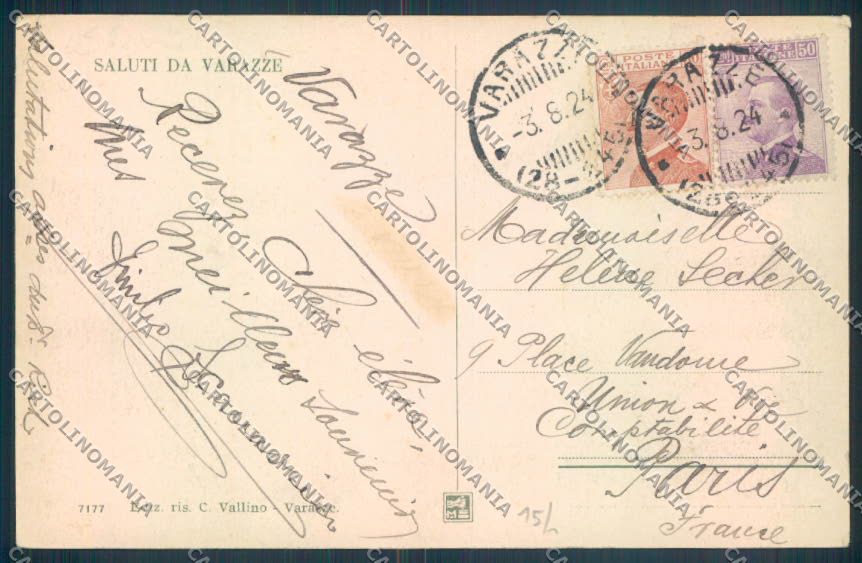 SALUTI DA VARAZZE
Varazze
Chère élève,
Recevez mes
meilleurs souvenirs
Salutations
VARAZZE
-3. 8. 24
(28-
POSTE
ITALIANE
VARAZZE
-3. 8. 24
POSTE
ITALIANE 50
Mademoiselle
Helène Secher
9 Place Vandome
Union & Vie
Comptabilité
Paris
France
7177 Eerz. ris. C. Vallino - Varazze.
15/-
CARTOLINOMANIA